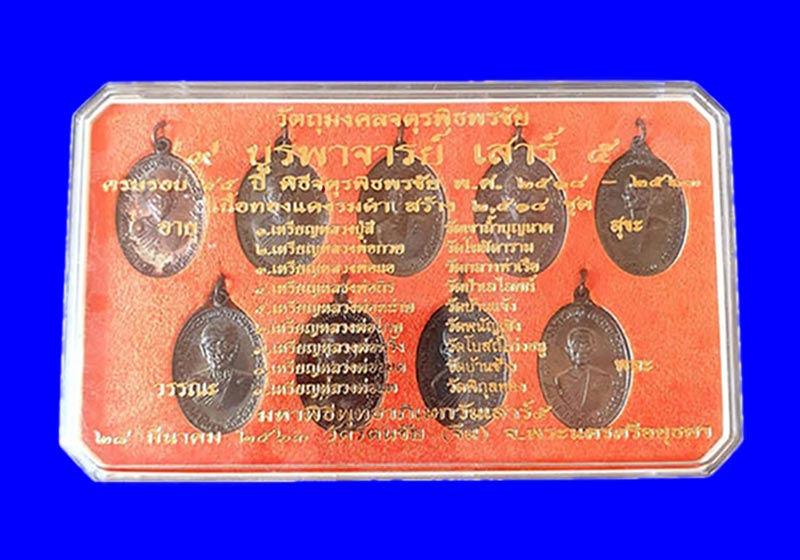 วัตถุมงคลจตุรพิธพรชัย
๙ บูรพาจารย์ เสาร์ ๕
ครบรอบ ๔๕ ปี พิธีจตุรพิธพรชัย พ.ศ. ๒๕๑๘ - ๒๕๖๓
เนื้อทองแดงรมดำ สร้าง ๒,๕๑๘ ชุด
อายุ สุขะ
๑.เหรียญหลวงปู่สี วัดเขาถ้ำบุญนาค
๒.เหรียญหลวงพ่อกวย วัดโฆสิตาราม
๓.เหรียญหลวงพ่อ วัดกลางท่าเรือ
๔.เหรียญหลวงพ่อ
๕.เหรียญหลวงพ่อ วัดบ้านแจ้ง
๖.เหรียญหลวงพ่อ วัดพนัญเชิง
๗.เหรียญหลวงพ่อ วัดโบสถ์
๘.เหรียญหลวงพ่อ วัดบ้านช้าง
๙.เหรียญหลวงพ่อ วัดพิกุลทอง
วรรณะ พละ
มหาพิธีพุทธาภิเษกวันเสาร์๕
๒๘ มีนาคม ๒๕๖๓ วัดรัตนชัย (จีน) จ.พระนครศรีอยุธยา